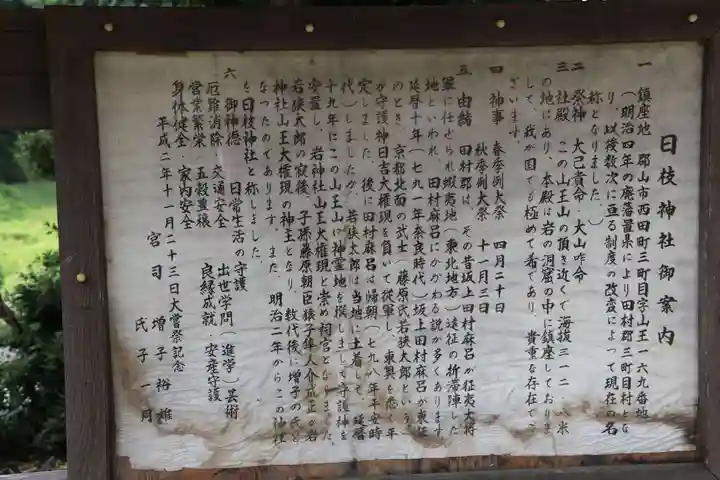 日枝神社御案内
一 鎮座地 郡山市西田町三町目字山王一六九番地
（明治四年の廃藩置県により田村郡三町目村とな
り、以後数次に亘る制度の改変によって現在の名
称となりました。）
二 祭神 大己貴命・大山咋命
三 社殿 この山王山の頂き近くで海抜三一二・八米
の地にあり、本殿は岩の洞窟の中に鎮座しておりま
して、我が国でも極めて希であり、貴重な存在でご
ざいます。
四 神事 春季例大祭 四月二十日
秋季例大祭 十一月三日
五 由緒 田村郡は、その昔坂上田村麻呂が征夷大将
軍に任ぜられ蝦夷地（東北地方）遠征の折滞陣した
地といわれ、田村麻呂にかかわる説が多くあります
延暦十年（七九一年奈良時代）坂上田村麻呂が東征
のとき、京都北面の武士（藤原氏若狭太郎という。）
が守護神日吉大権現を負いて従軍し、東奥を悉く平
定しました。後に田村麻呂は帰朝（七九八年平安時
代）しましたが、若狭太郎は当地に土着して、延暦
十九年にこの山王山に神霊地を撰しまして守護神を
安置し、岩神社山王大権現と崇め祠官となりました。
若狭太郎の歿後、子孫藤原朝臣猿子隼人介光正が岩
神社山王大権現の神主となり、数代後に増子の氏と
なったのであります。また、明治二年からこの神社
を日枝神社と称しました。
六 御神徳 日常生活の守護 出世学問（進学）芸術
厄難消除 交通安全 良縁成就・安産守護
営業繁栄 五穀豊穣
身体健全 家内安全
平成二年十一月二十三日大嘗祭記念
宮司 増子裕雄
氏子一同